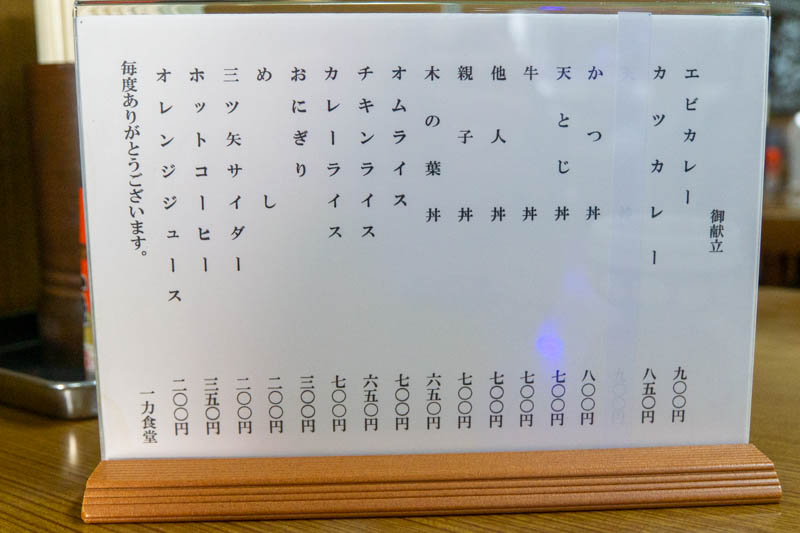 御献立
エビカレー 九〇〇円
カツカレー 八五〇円
かつ丼 八〇〇円
天とじ丼 七〇〇円
牛丼 七〇〇円
他人丼 七〇〇円
親子丼 七〇〇円
木の葉丼 六五〇円
オムライス 七〇〇円
チキンライス 六五〇円
カレーライス 七〇〇円
おにぎり 三〇〇円
めし 二〇〇円
三ツ矢サイダー 二〇〇円
ホットコーヒー 三五〇円
オレンジジュース 二〇〇円
毎度ありがとうございます。
一力食堂